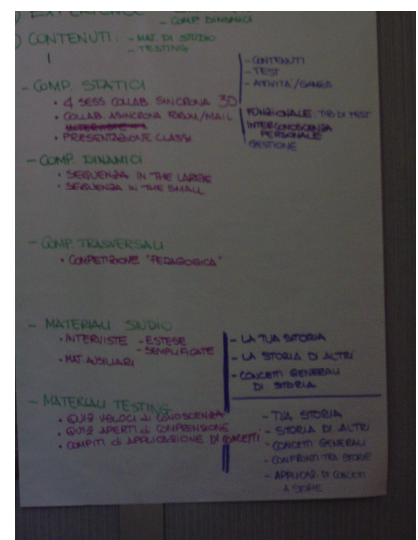 - COMP. DINAMICI
CONTENUTI: - MAT. DI STUDIO
- TESTING
- CONTENUTI
- TEST
- ATTIVITA'/GAMES
- COMP. STATICI
• 4 SESS COLLAB. SINCRONA 3D
• COLLAB. ASINCRONA FORUM/MAIL
• PRESENTAZIONE CLASSI
FUNZIONALE: TIPO DI TEST
INTERCONOSCENZA
PERSONALE
GESTIONE
- COMP. DINAMICI
• SEQUENZA IN THE LARGE
• SEQUENZA IN THE SMALL
- COMP. TRASVERSALI
• COMPETIZIONE "PEDAGOGICA"
- MATERIALI STUDIO
• INTERVISTE - ESTESE
- SEMPLIFICATE
• MAT. AUSILIARI
- LA TUA STORIA
- LA STORIA DI ALTRI
- CONCETTI GENERALI
DI STORIA
- MATERIALI TESTING
• QUIZ VELOCI di CONOSCENZA
• QUIZ APERTI di COMPRENSIONE
• COMPITI di APPLICAZIONE DI CONCETTI
- TUA STORIA
- STORIA DI ALTRI
- CONCETTI GENERALI
- CONFRONTI TRA STORIE
- APPLICAZ. DI CONCETTI
A STORIE